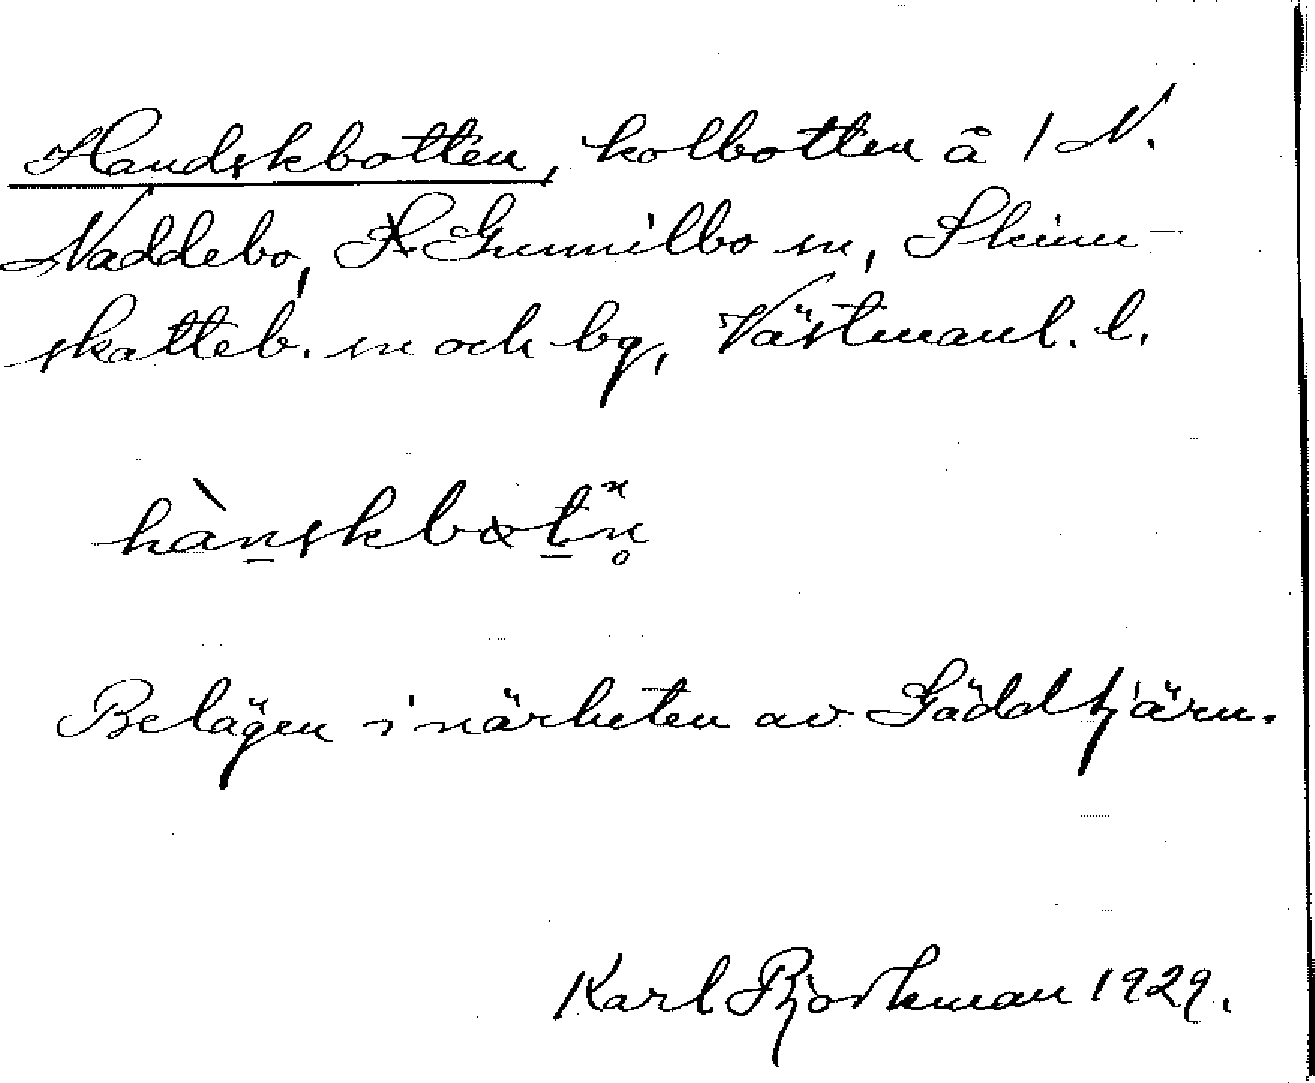 Handskbotten, kolbotten å 1 N.
Naddebo, Gunnilbo sn, Skinn-
skatteb. sn och bg, Västmanl. l.
hànskbotn
Belägen i närheten av Gäddtjärn.
Karl Björkman 1929.